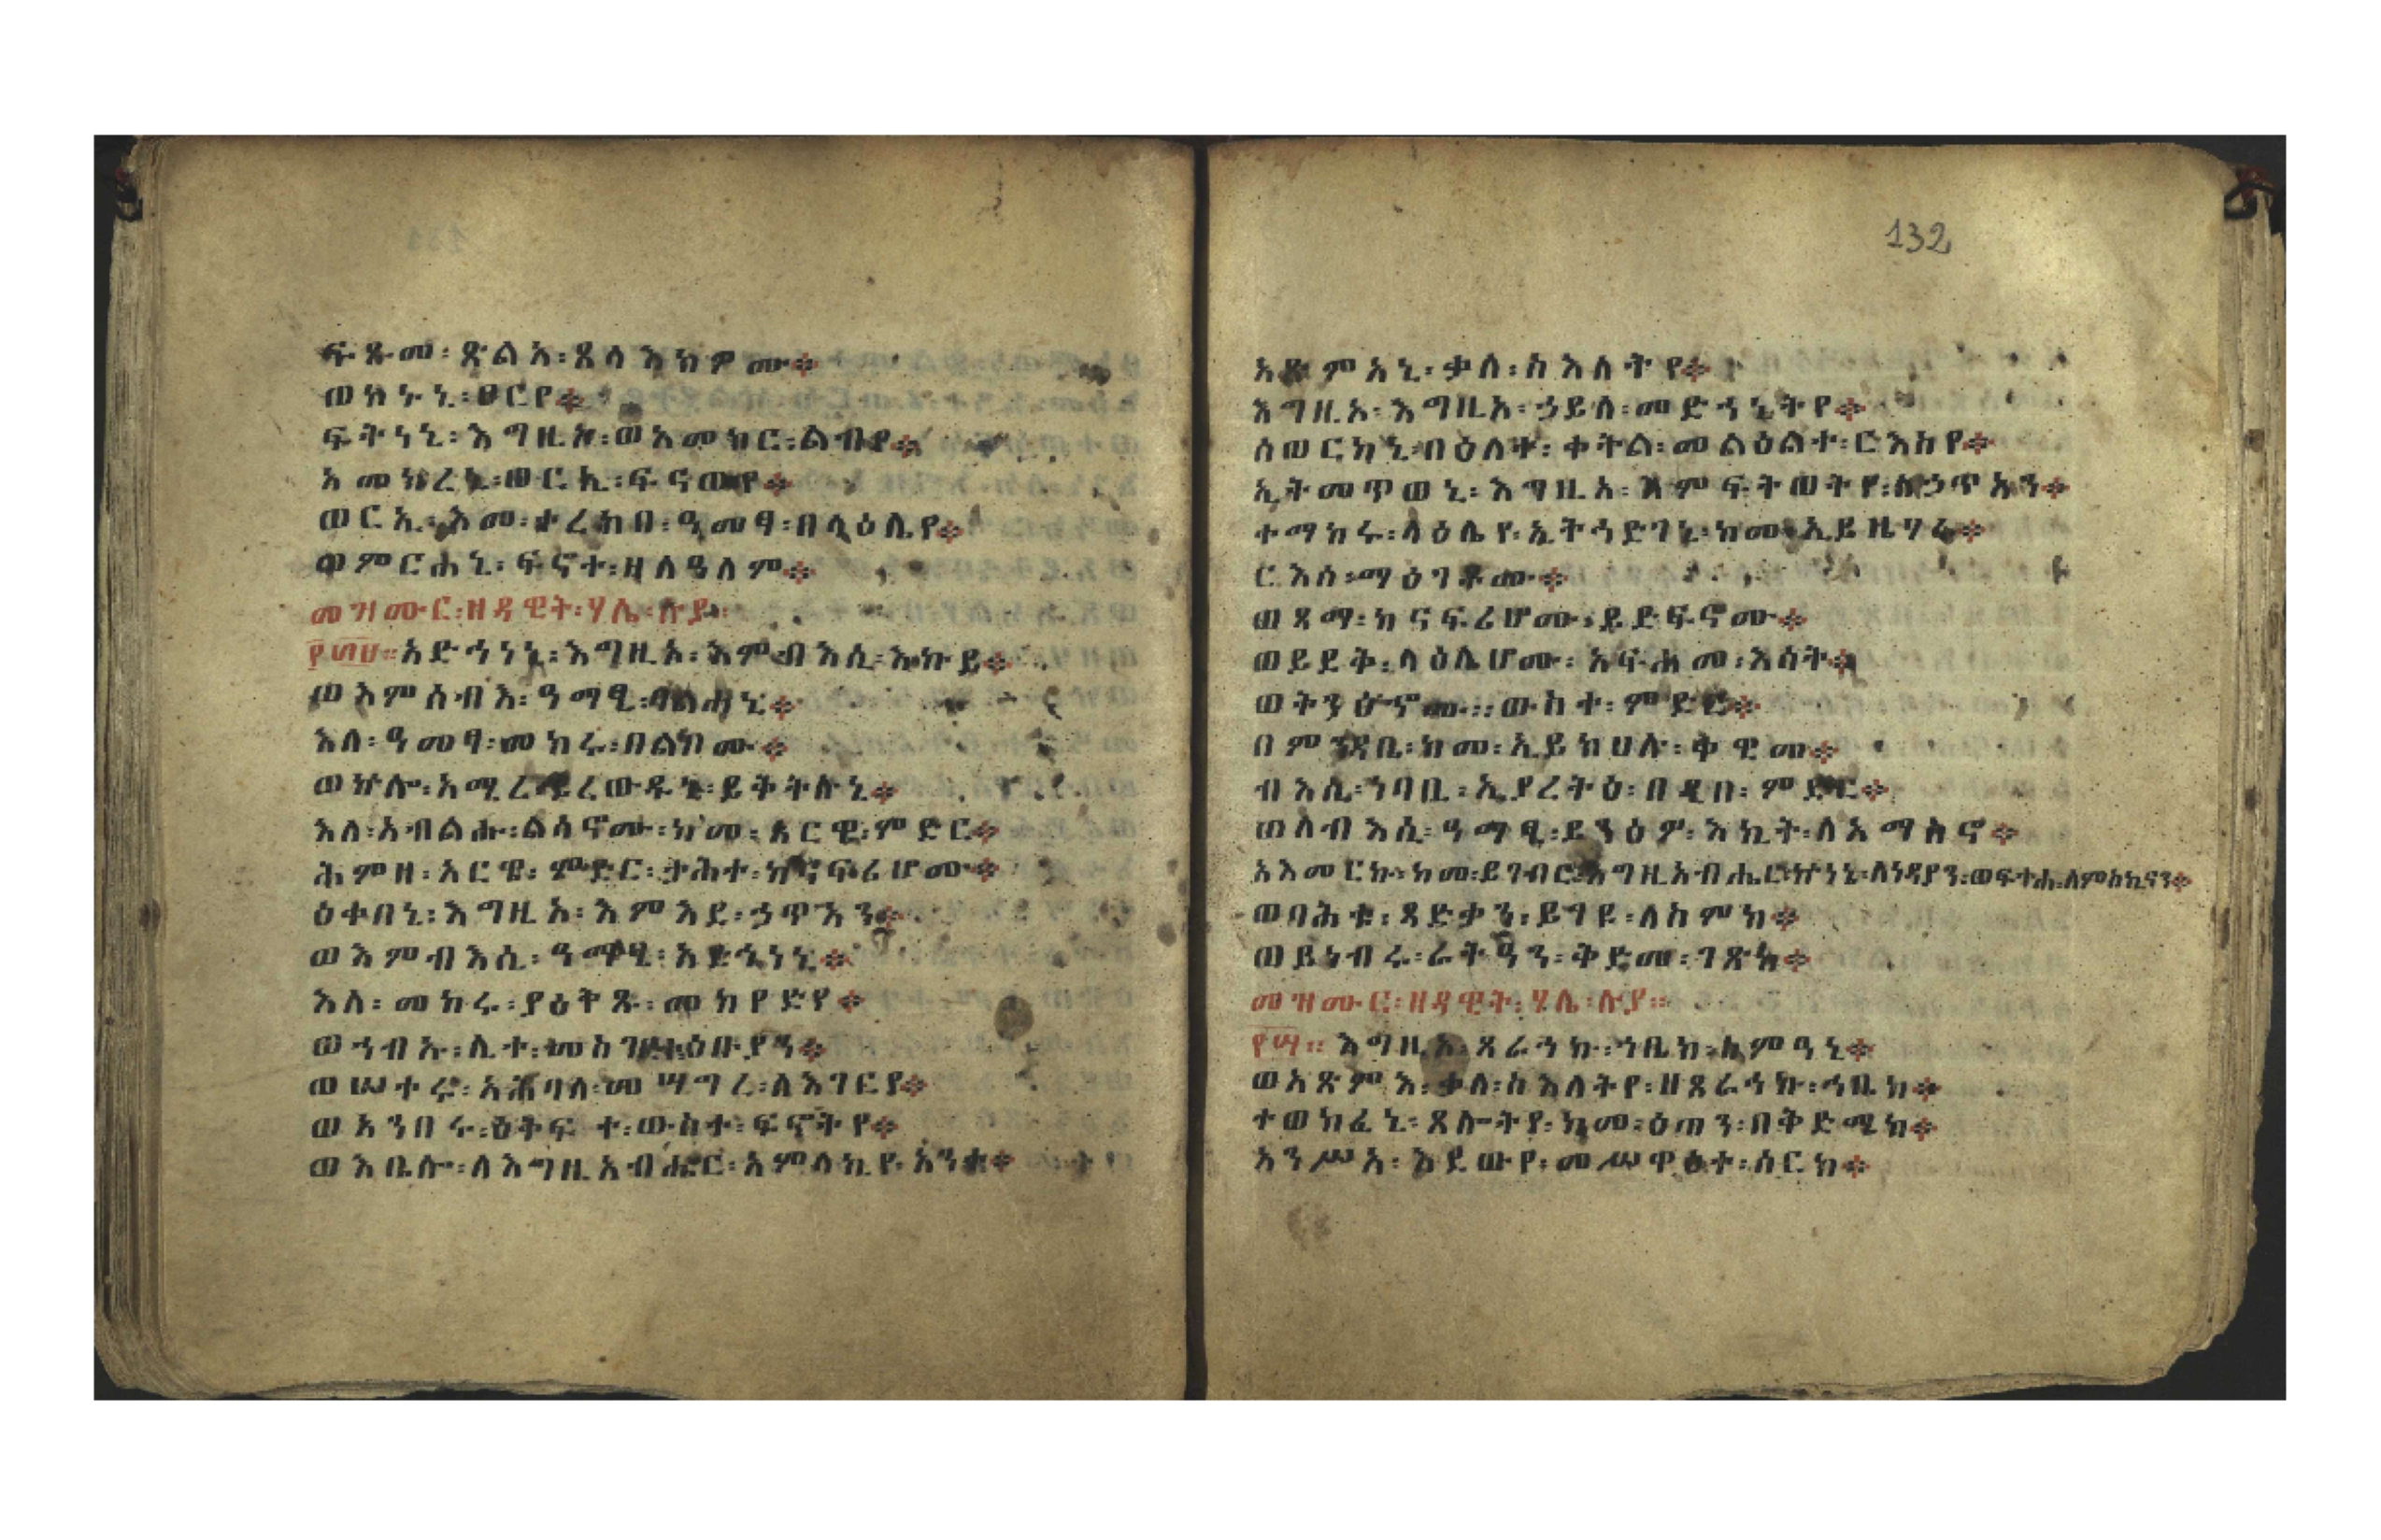 ፍጹመ፡ ጽልአ፡ ጸላእክዎሙ።
ወኮኑኒ፡ ፀርየ።
ፍትነኒ፡ እግዚኦ፡ ወአመክር፡ ልብየ።
አመክረኒ፡ ወርኢ፡ ፍናውየ።
ወርኢ፡ እመ፡ ተረክበ፡ ዓመፃ፡ በላዕሌየ።
ወምርሐኒ፡ ፍኖተ፡ ዘለዓለም።
መዝሙር፡ ዘዳዊት፡ ሃሌ፡ ሉያ።
አድኅነኒ፡ እግዚኦ፡ እምብእሲ፡ እኩይ።
ወእምሰብእ፡ ዓማፂ፡ ባልሐኒ።
እለ፡ ዓመፃ፡ መከሩ፡ በልቦሙ።
ወኵሎ፡ አሚረ፡ ይረውዱኒ፡ ይቅትሉኒ።
እለ፡ አብልሑ፡ ልሳኖሙ፡ ከመ፡ አርዌ፡ ምድር።
ሕምዘ፡ አርዌ፡ ምድር፡ ታሕተ፡ ከናፍሪሆሙ።
ዕቀበኒ፡ እግዚኦ፡ እምእደ፡ ኃጥአን።
ወእምብእሲ፡ ዓማፂ፡ አድኅነኒ።
እለ፡ መከሩ፡ ያዕቅጹ፡ መከየድየ።
ወኀብኡ፡ ሊተ፡ መስገርተ፡ ዕቡያን።
ወሠተሩ፡ አሕባለ፡ መሣግረ፡ ለእገርየ።
ወአንበሩ፡ ዕቅፍተ፡ ውስተ፡ ፍኖትየ።
ወእቤሎ፡ ለእግዚአብሔር፡ አምላኪየ፡ አንተ።
132
አጽምአኒ፡ ቃለ፡ ስእለትየ።
እግዚኦ፡ እግዚኦ፡ ኃይለ፡ መድኀኒትየ።
ሰወርከኒ፡ በዕለተ፡ ቀትል፡ መልዕልተ፡ ርእስየ።
ኢትመጥወኒ፡ እግዚኦ፡ እምፍትወትየ፡ ለኃጥአን።
ተማከሩ፡ ላዕሌየ፡ ኢትኅድገኒ፡ ከመ፡ ኢይዜሃሩ።
ርእሰ፡ ማዕገቶሙ።
ወጻማ፡ ከናፍሪሆሙ፡ ይድፍኖሙ።
ወይደቅ፡ ላዕሌሆሙ፡ አፍሐመ፡ እሳት።
ወትንዕኖሙ፡፡ ውስተ፡ ምድር።
በምንዳቤ፡ ከመ፡ ኢይክሀሉ፡ ቀዊመ።
ብእሲ፡ ነባቢ፡ ኢያረትዕ፡ በዲበ፡ ምድር።
ወለብእሲ፡ ዓማፂ፡ ይንዕዎ፡ እኪት፡ ለአማስኖ።
አእመርኩ፡ ከመ፡ ይገብር፡ እግዚአብሔር፡ ኵነኔ፡ ለነዳያን፡ ወፍተሐ፡ ለምስኪናን።
ወባሕቱ፡ ጻድቃን፡ ይገንዩ፡ ለስምከ።
ወይነብሩ፡ ራትዓን፡ ቅድመ፡ ገጽከ።
መዝሙር፡ ዘዳዊት፡ ሃሌ፡ ሉያ።
እግዚኦ፡ ጸራኅኩ፡ ኀቤከ፡ ስምዓኒ።
ወአጽምእ፡ ቃለ፡ ስእለትየ፡ ዘጸራኅኩ፡ ኀቤከ።
ተወከፈኒ፡ ጸሎትየ፡ ከመ፡ ዕጣን፡ በቅድሜከ።
አንሥአ፡ እደውየ፡ መሥዋዕተ፡ ሰርክ።